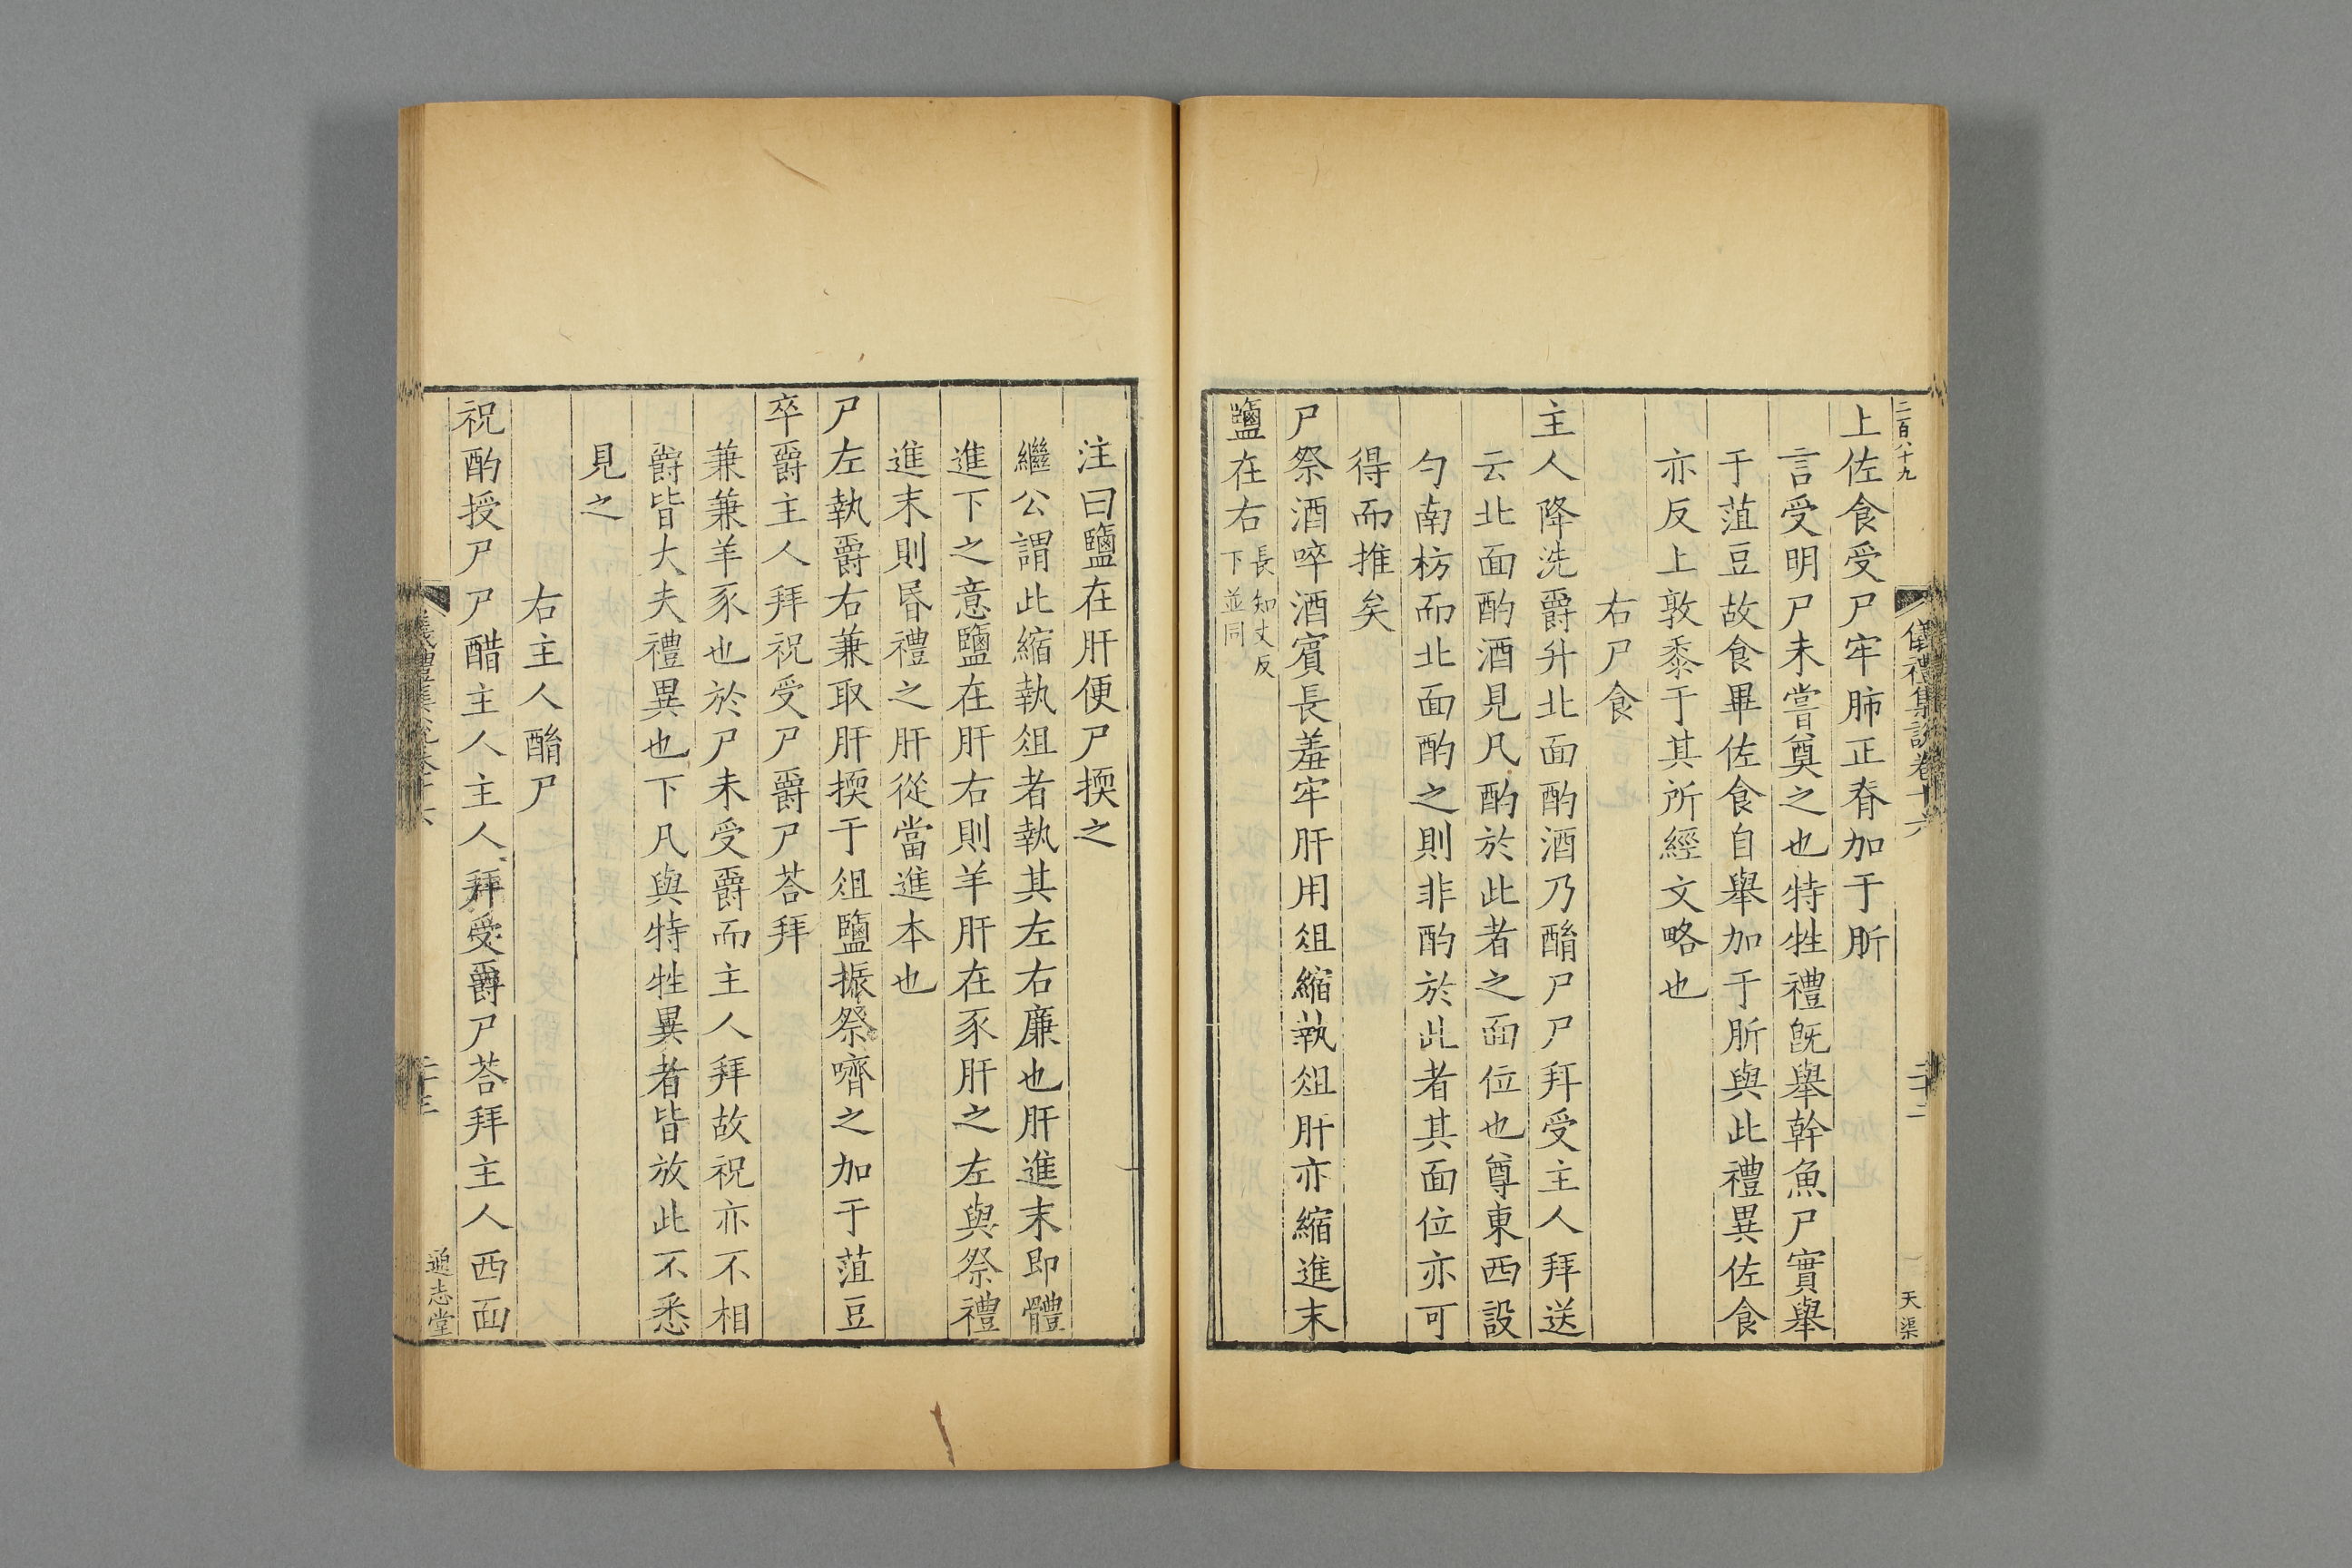 二百八十九
儀禮集說卷十六
二十二
天渠
上佐食受尸牢肺正脊加于肵
言受明尸未嘗奠之也特牲禮旣舉幹魚尸實舉
于菹豆故食畢佐食自舉加于肵與此禮異佐食
亦反上敦黍于其所經文略也
右尸食
主人降洗爵升北面酌酒乃酳尸尸拜受主人拜送
云北面酌酒見凡酌於此者之面位也尊東西設
勺南枋而北面酌之則非酌於此者其面位亦可
得而推矣
尸祭酒啐酒賓長羞牢肝用俎縮執俎肝亦縮進末
鹽在右長知丈反下並同
注曰鹽在肝便尸㨎之
繼公謂此縮執俎者執其左右廉也肝進末即體
進下之意鹽在肝右則羊肝在豕肝之左與祭禮
進末則昬禮之肝從當進本也
尸左執爵右兼取肝㨎于俎鹽振祭嚌之加于菹豆
卒爵主人拜祝受尸爵尸荅拜
兼兼羊豕也於尸未受爵而主人拜故祝亦不相
爵皆大夫禮異也下凡與特牲異者皆放此不悉
見之
右主人酳尸
祝酌授尸尸醋主人主人拜受爵尸荅拜主人西面
儀禮集說卷十六
二十三
通志堂